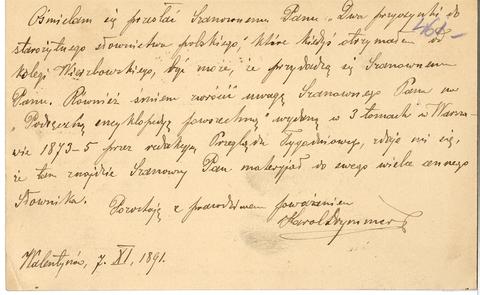 Ośmielam się przesłać Szanownemu Panu „Dwa przyczynki do
starożytnego słownictwa polskiego,” które kiedyś otrzymałem od
kolegi Wierzbowskiego, być może, że przydadzą się Szanownemu
Panu. Również śmiem zwrócić uwagę Szanownego Pana na
„Podręczną encyklopedję powszechną” wydaną w 3 tomach w Warsza-
wie 1873-5 przez redakcyę Przeglądu Tygodniowego, zdaje mi się,
że tam znajdzie Szanowny Pan materyjał do swego wielce cennego
Słownika.
Pozostaję z prawdziwem poważaniem
Karol Drymmer
Walentynów, 7. XI, 1891.